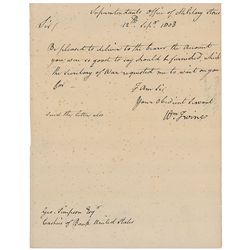 Superintendants Office of Military Stores
12th Sept. 1803
Sir
Be pleased to deliver to the bearer the Account
you were so good to say should be furnished, which
the Secretary of War requested me to wait on you
for —
I am Sir
Your Obedient Servant
Wm. Irvine
send this letter also
Geo. Simpson Esqr.
Cashier of Bank United States